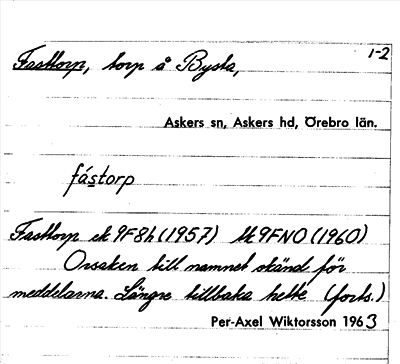 1-2
Fasttorp, torp å Bysta,
Askers sn, Askers hd, Örebro län.
fástorp
Fasttorp ek 9F8h (1957) tk 9FNO (1960)
Orsaken till namnet okänd för
meddelarna. Längre tillbaka hette (forts.)
Per-Axel Wiktorsson 1963